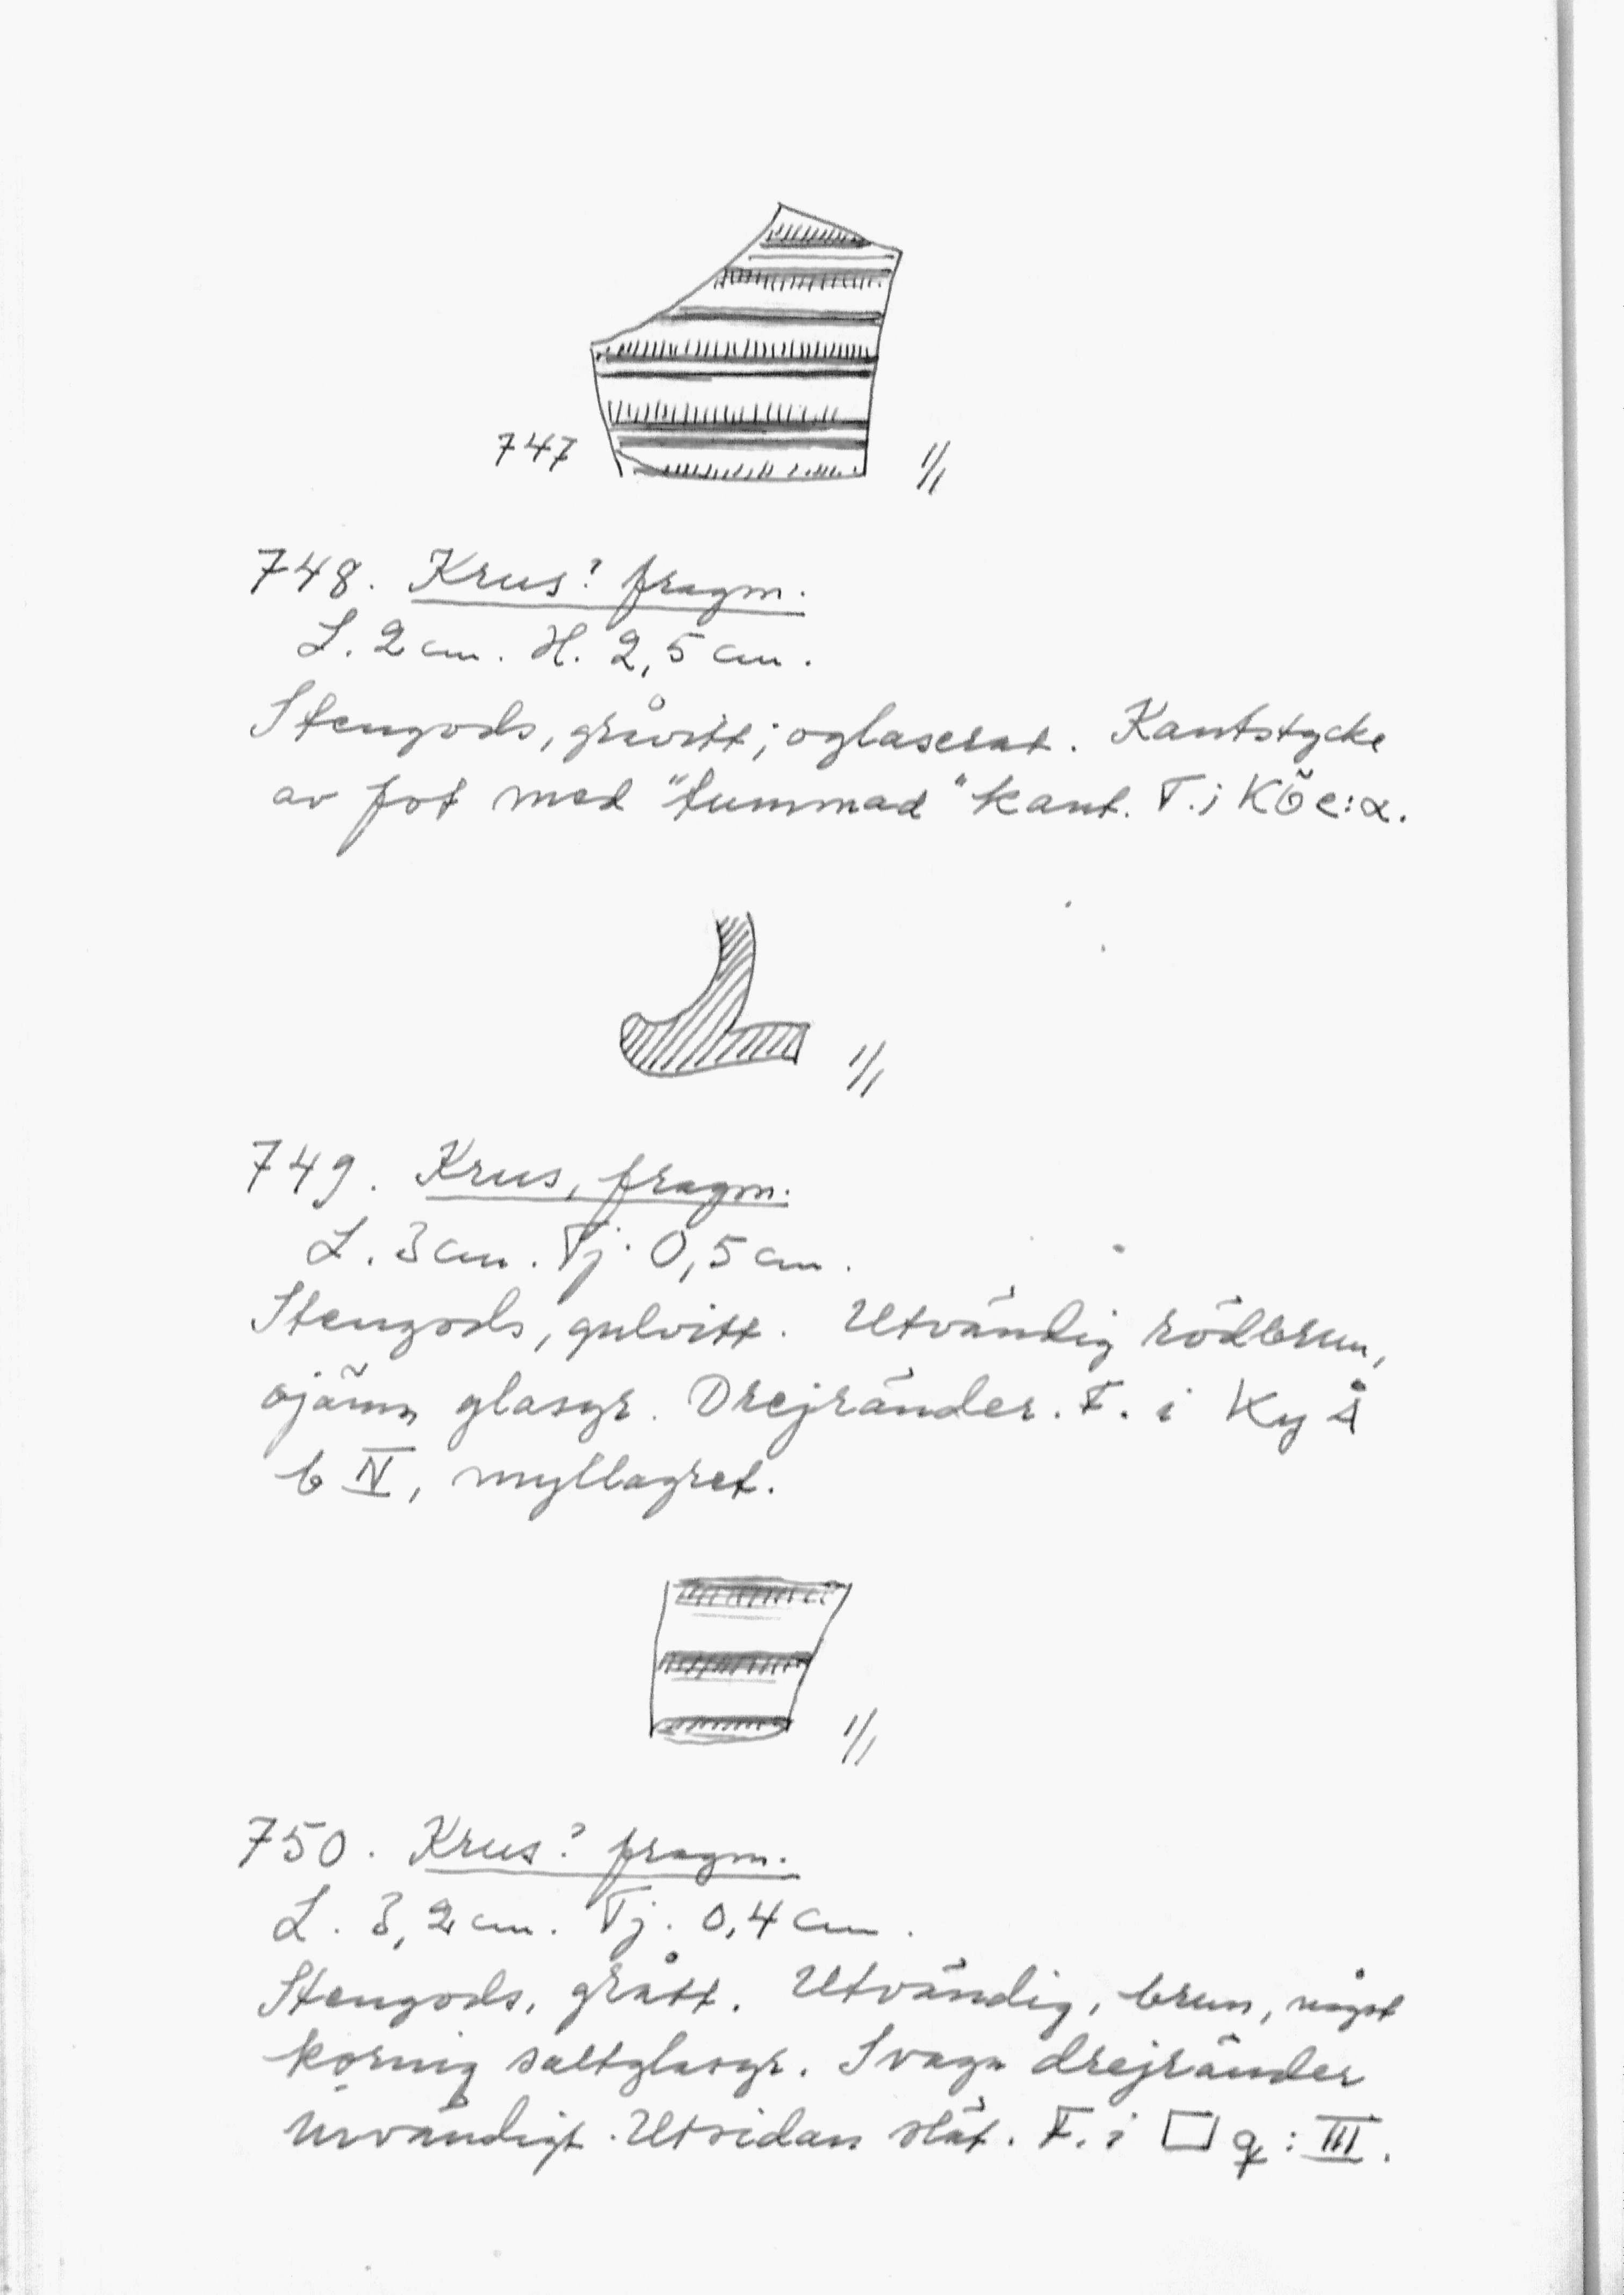 747 1/1
748. Krus? fragm.
L. 2 cm. H. 2,5 cm.
Stengods, gråvitt; oglaserat. Kantstycke
av fot med "tummad" kant. F. i KÖ e:α.
1/1
749. Krus, fragm.
L. 3 cm. Tj. 0,5 cm.
Stengods, gulvitt. Utvändig rödbrun,
ojämn glasyr. Drejränder. F. i Ky Å
b IV, myllagret.
1/1
750. Krus? fragm.
L. 3,2 cm. Tj. 0,4 cm.
Stengods, grått. Utvändig, brun, något
kornig saltglasyr. Svaga drejränder
invändigt. Utsidan slät. F. i □ q: III.